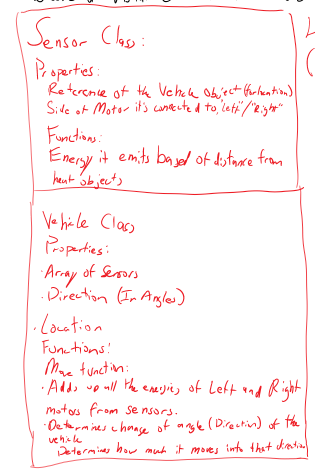 Sensor Class:
Properties:
Reference of the Vehicle Object (for location)
Side of Motor it's connected to "Left"/"Right"
Functions:
Energy it emits based of distance from
heat objects
Vehicle Class
Properties:
· Array of Sensors
· Direction (In Angles)
· Location
Functions:
Move function:
· Adds up all the energies of Left and Right
motors from sensors.
· Determines change of angle (Direction) of the
vehicle
Determines how much it moves into that direction